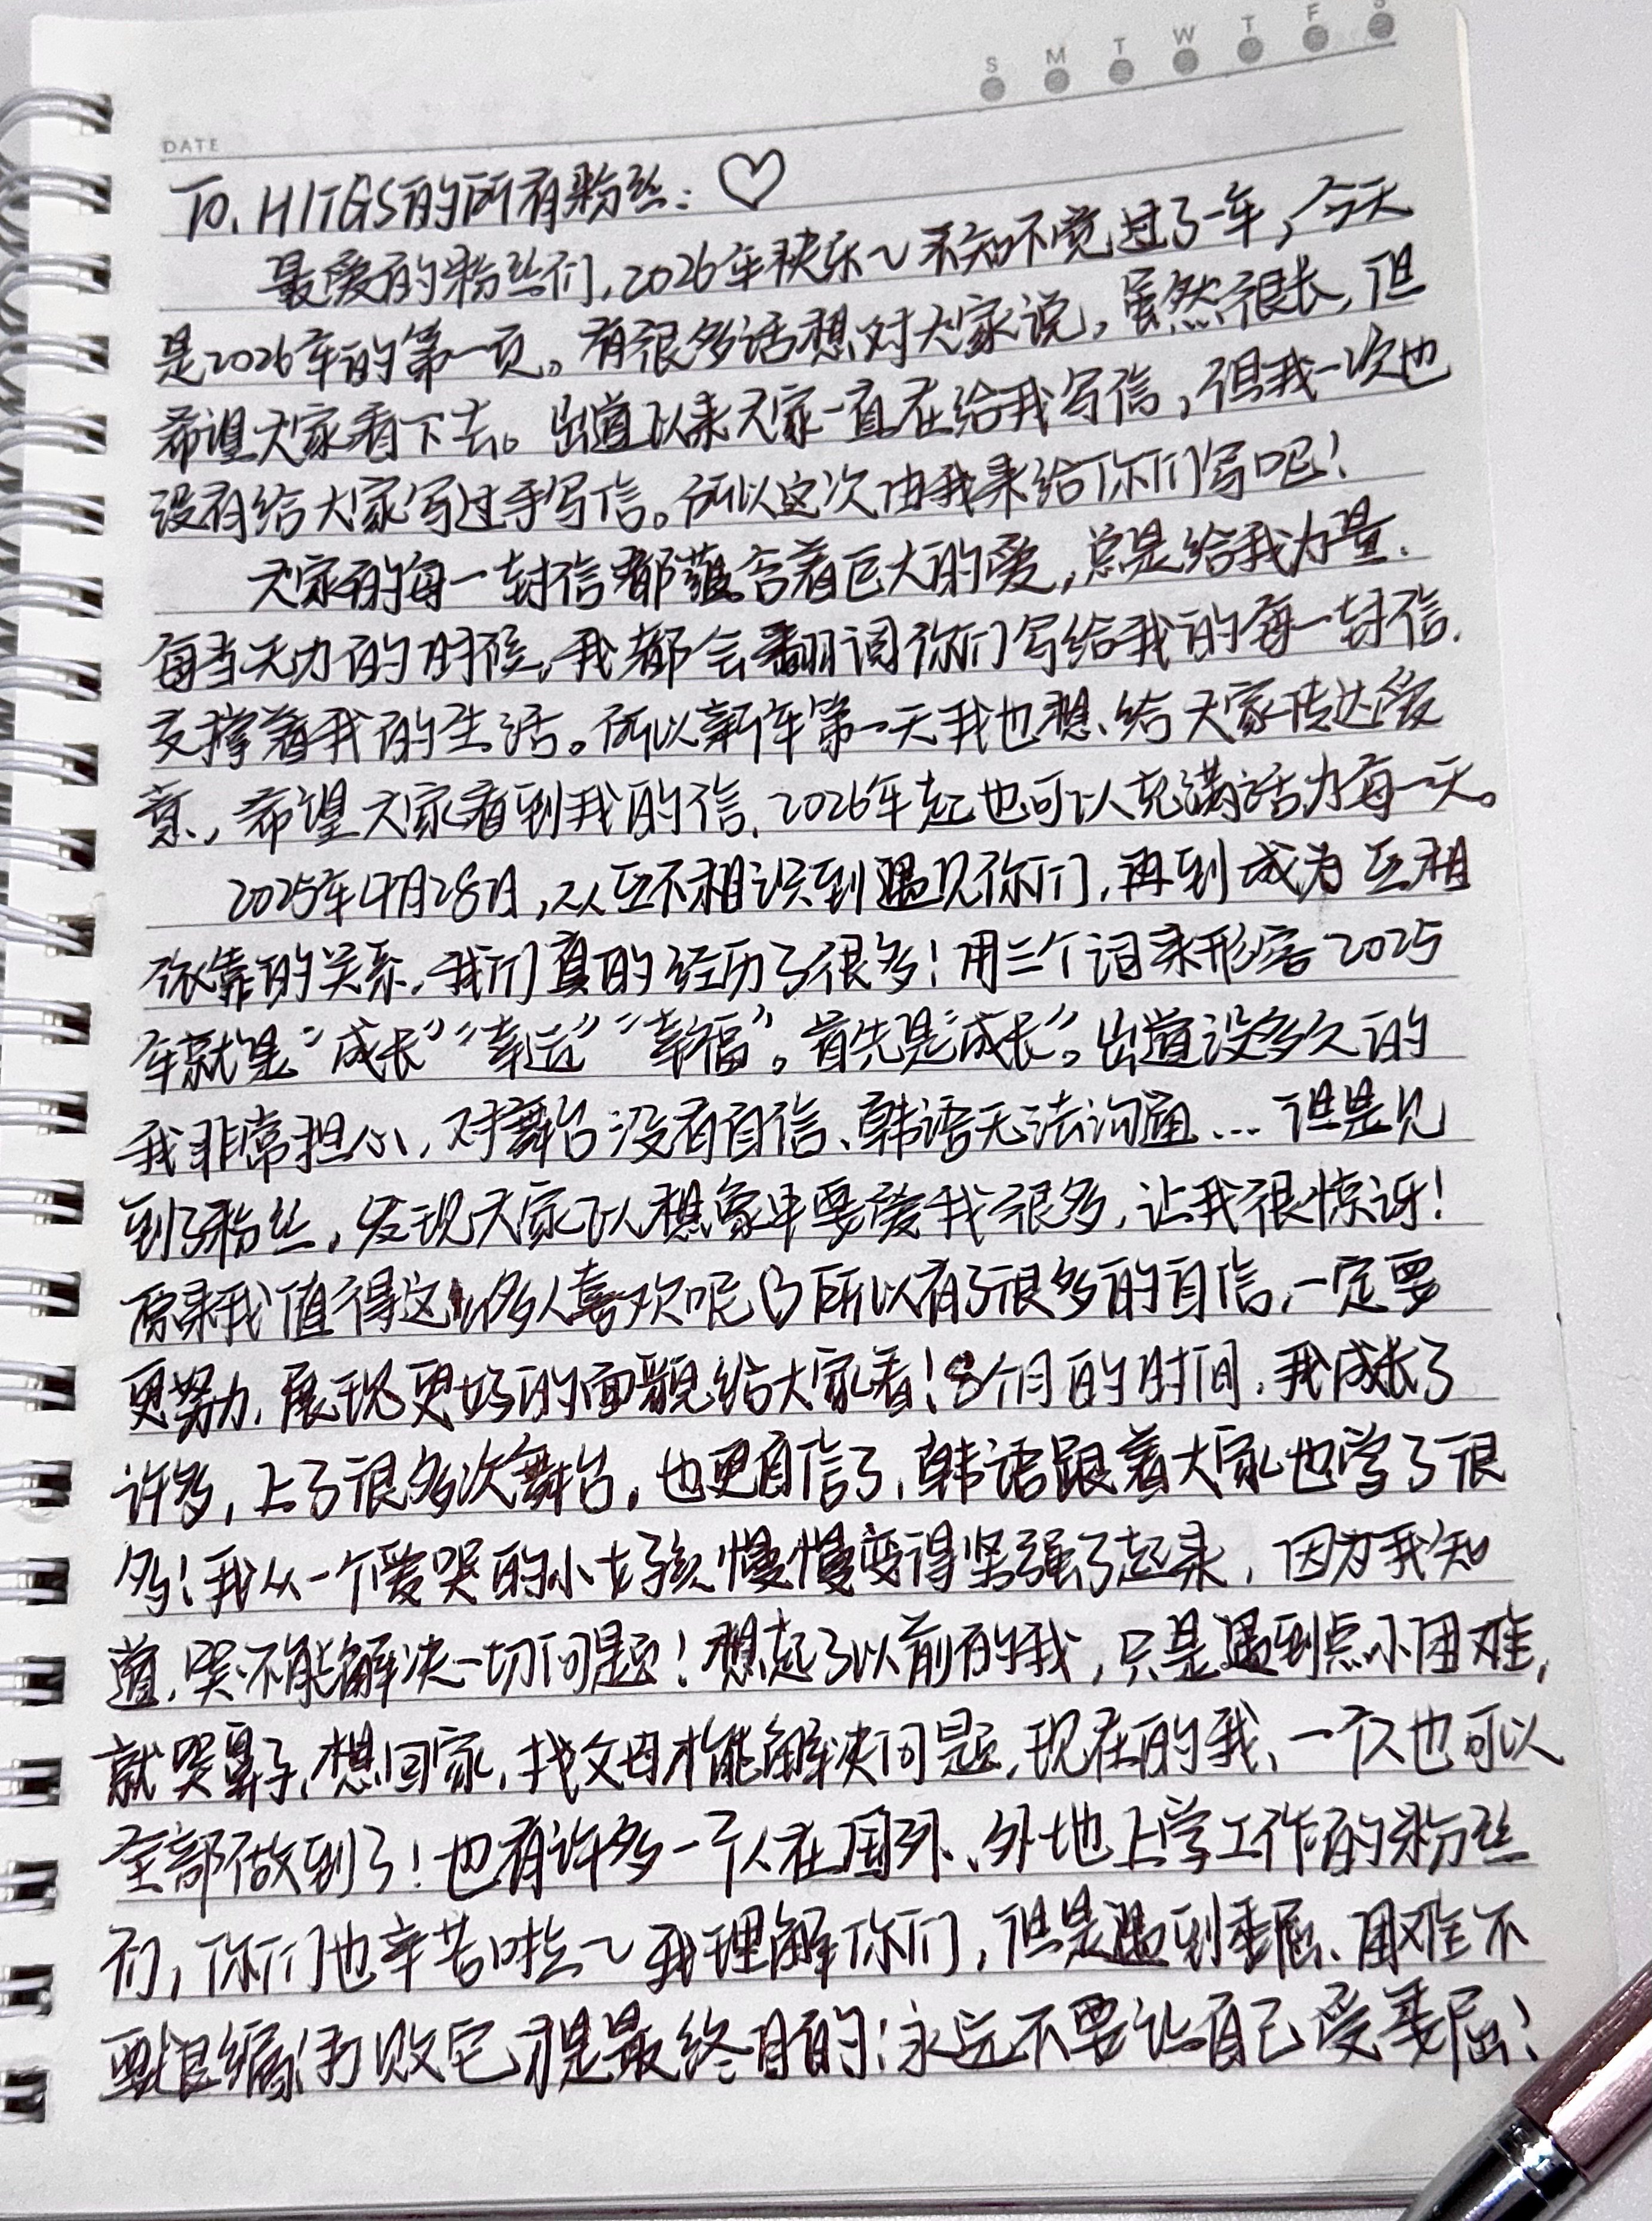 S M T W T F S
DATE
To. HITGS的所有粉丝: ♡
最爱的粉丝们,2026年快乐~不知不觉过了一年,今天
是2026年的第一页。有很多话想对大家说,虽然很长,但
希望大家看下去。出道以来大家一直在给我写信,但我一次也
没有给大家写过手写信。所以这次由我来给你们写吧!
大家的每一封信都蕴含着巨大的爱,总是给我力量.
每当无力的时候,我都会翻阅你们写给我的每一封信.
支撑着我的生活。所以新年第一天我也想给大家传达爱
意,希望大家看到我的信,2026年起也可以充满活力每一天。
2025年4月28日,从互不相识到遇见你们,再到成为互相
依靠的关系,我们真的经历了很多!用三个词来形容2025
年就是“成长”“幸运”“幸福”。首先是“成长”。出道没多久的
我非常胆小,对舞台没有自信、韩语无法沟通...但是见
到了粉丝,发现大家比想象中要爱我很多,让我很惊讶!
原来我值得这么多人喜欢呢♡所以有了很多的自信,一定要
更努力,展现更好的面貌给大家看!8个月的时间,我成长了
许多,上了很多次舞台,也更自信了,韩语跟着大家也学了很
多!我从一个爱哭的小女孩慢慢变得坚强了起来,因为我知
道,哭不能解决一切问题!想起了以前的我,只是遇到点小困难,
就哭鼻子,想回家,找父母才能解决问题,现在的我,一个人也可以
全部做到了!也有许多一个人在国外、外地上学工作的粉丝
们,你们也辛苦啦~我理解你们,但是遇到委屈、困难不
要退缩!打败它才是最终目的!永远不要让自己受委屈!